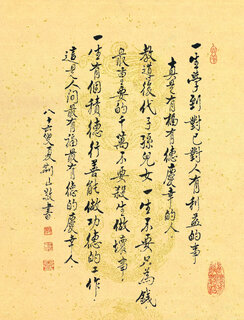 一生學到對己對人有利益的事
真是有福有德慶幸的人
教導後代子孫兒女一生不要只為錢
最重要的千萬不要殺生做壞事
一生有個積德行善能做功德的工作
這是人間最有福最有德的慶幸人
八十六叟夏荊山敬書